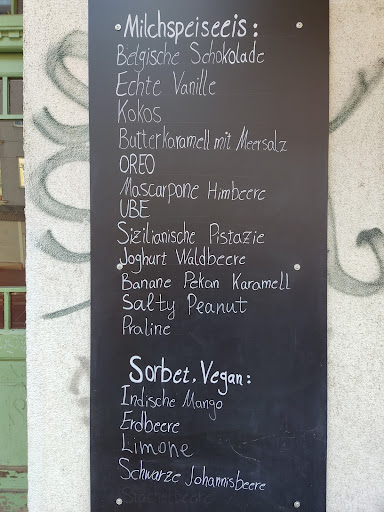 Milchspeiseeis:
Belgische Schokolade
Echte Vanille
Kokos
Butterkaramell mit Meersalz
OREO
Mascarpone Himbeere
UBE
Sizilianische Pistazie
Joghurt Waldbeere
Banane Pekan Karamell
Salty Peanut
Praline
Sorbet, Vegan:
Indische Mango
Erdbeere
Limone
Schwarze Johannisbeere